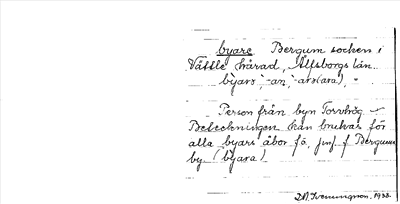 byare Bergum socken i
Vättle härad, Älfsborgs län.
byarə, -an, -arə(ara),
Person från byn Torrhög.
Beteckningen kan brukas för
alla byars åbor få, jmf. f Bergums
by. (byara)
D.A. Svenningson. 1933.